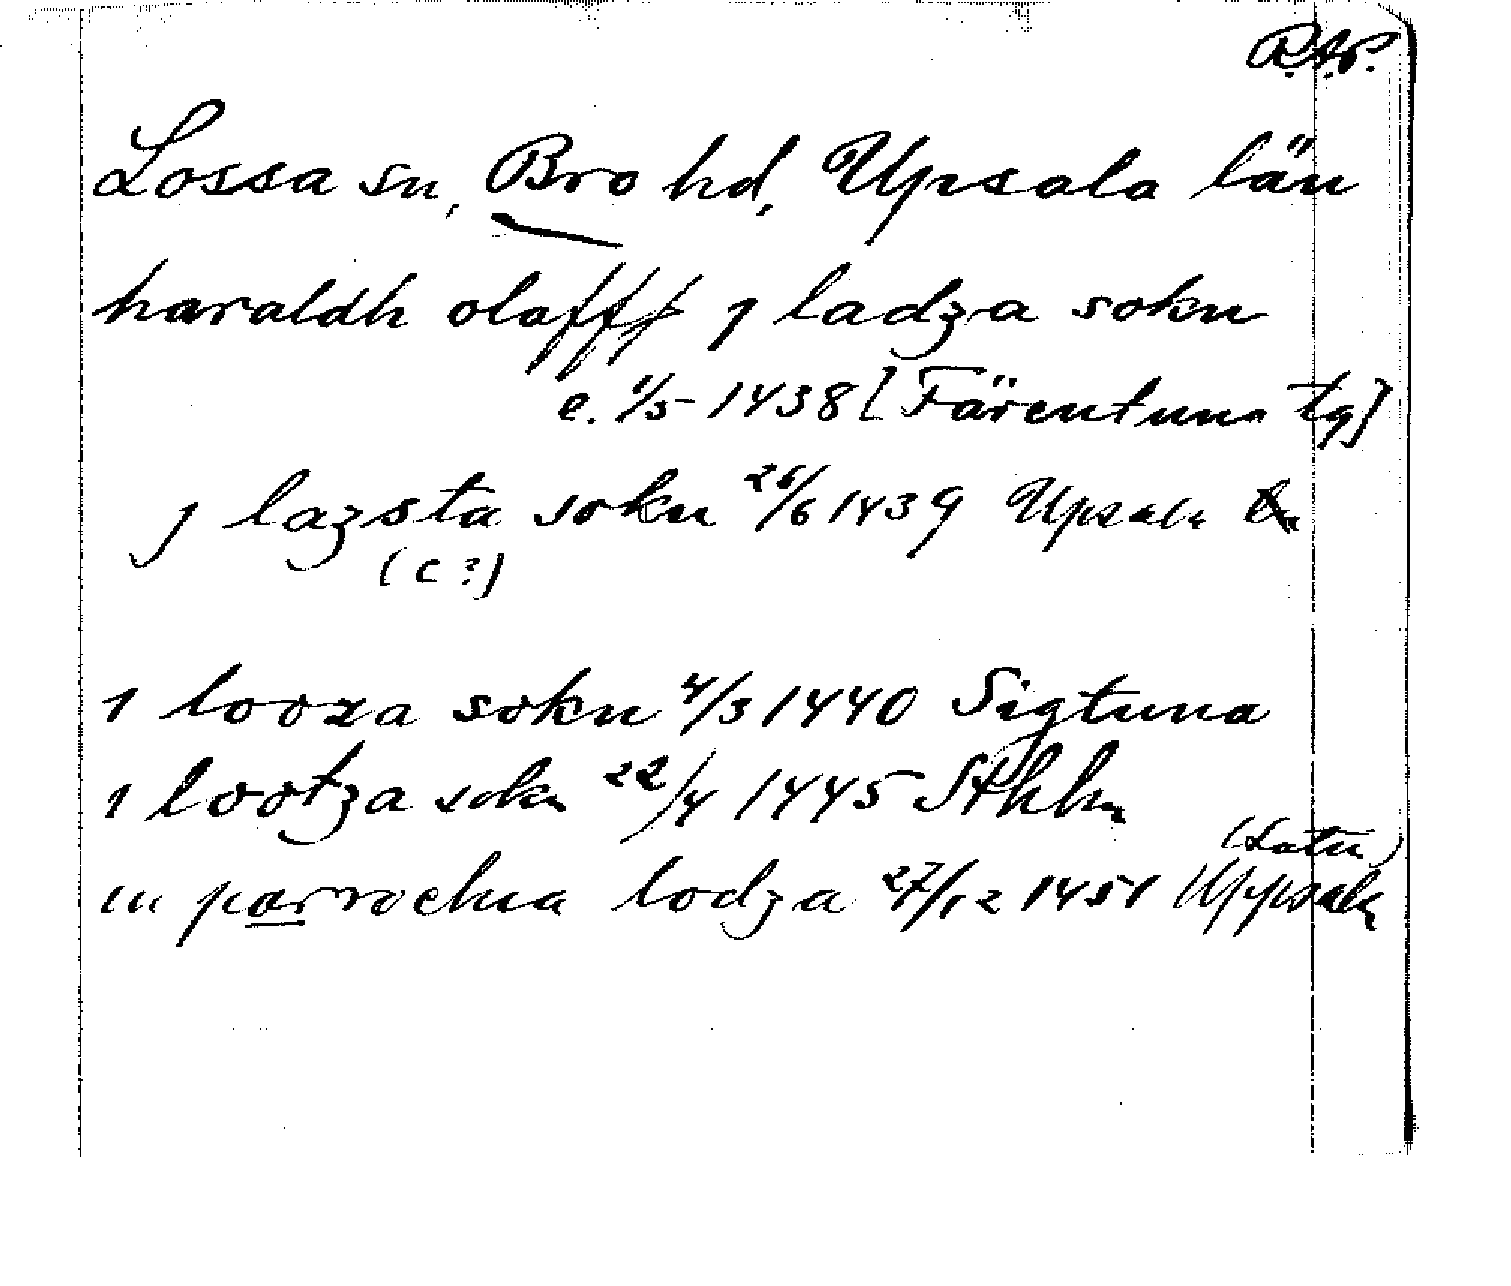 R.A.P.
Lossa sn, Bro hd, Upsala län
haraldh olafff j ladza sokn
e. 1/5 1438 [Färentuna tg]
j lazsta sokn 26/6 1439 Upsala
(c?)
j looza sokn 4/3 1440 Sigtuna
j lootza sokn 22/4 1445 Sthlm
(Latin)
in parrochia lodza 27/12 1451 Uppsala